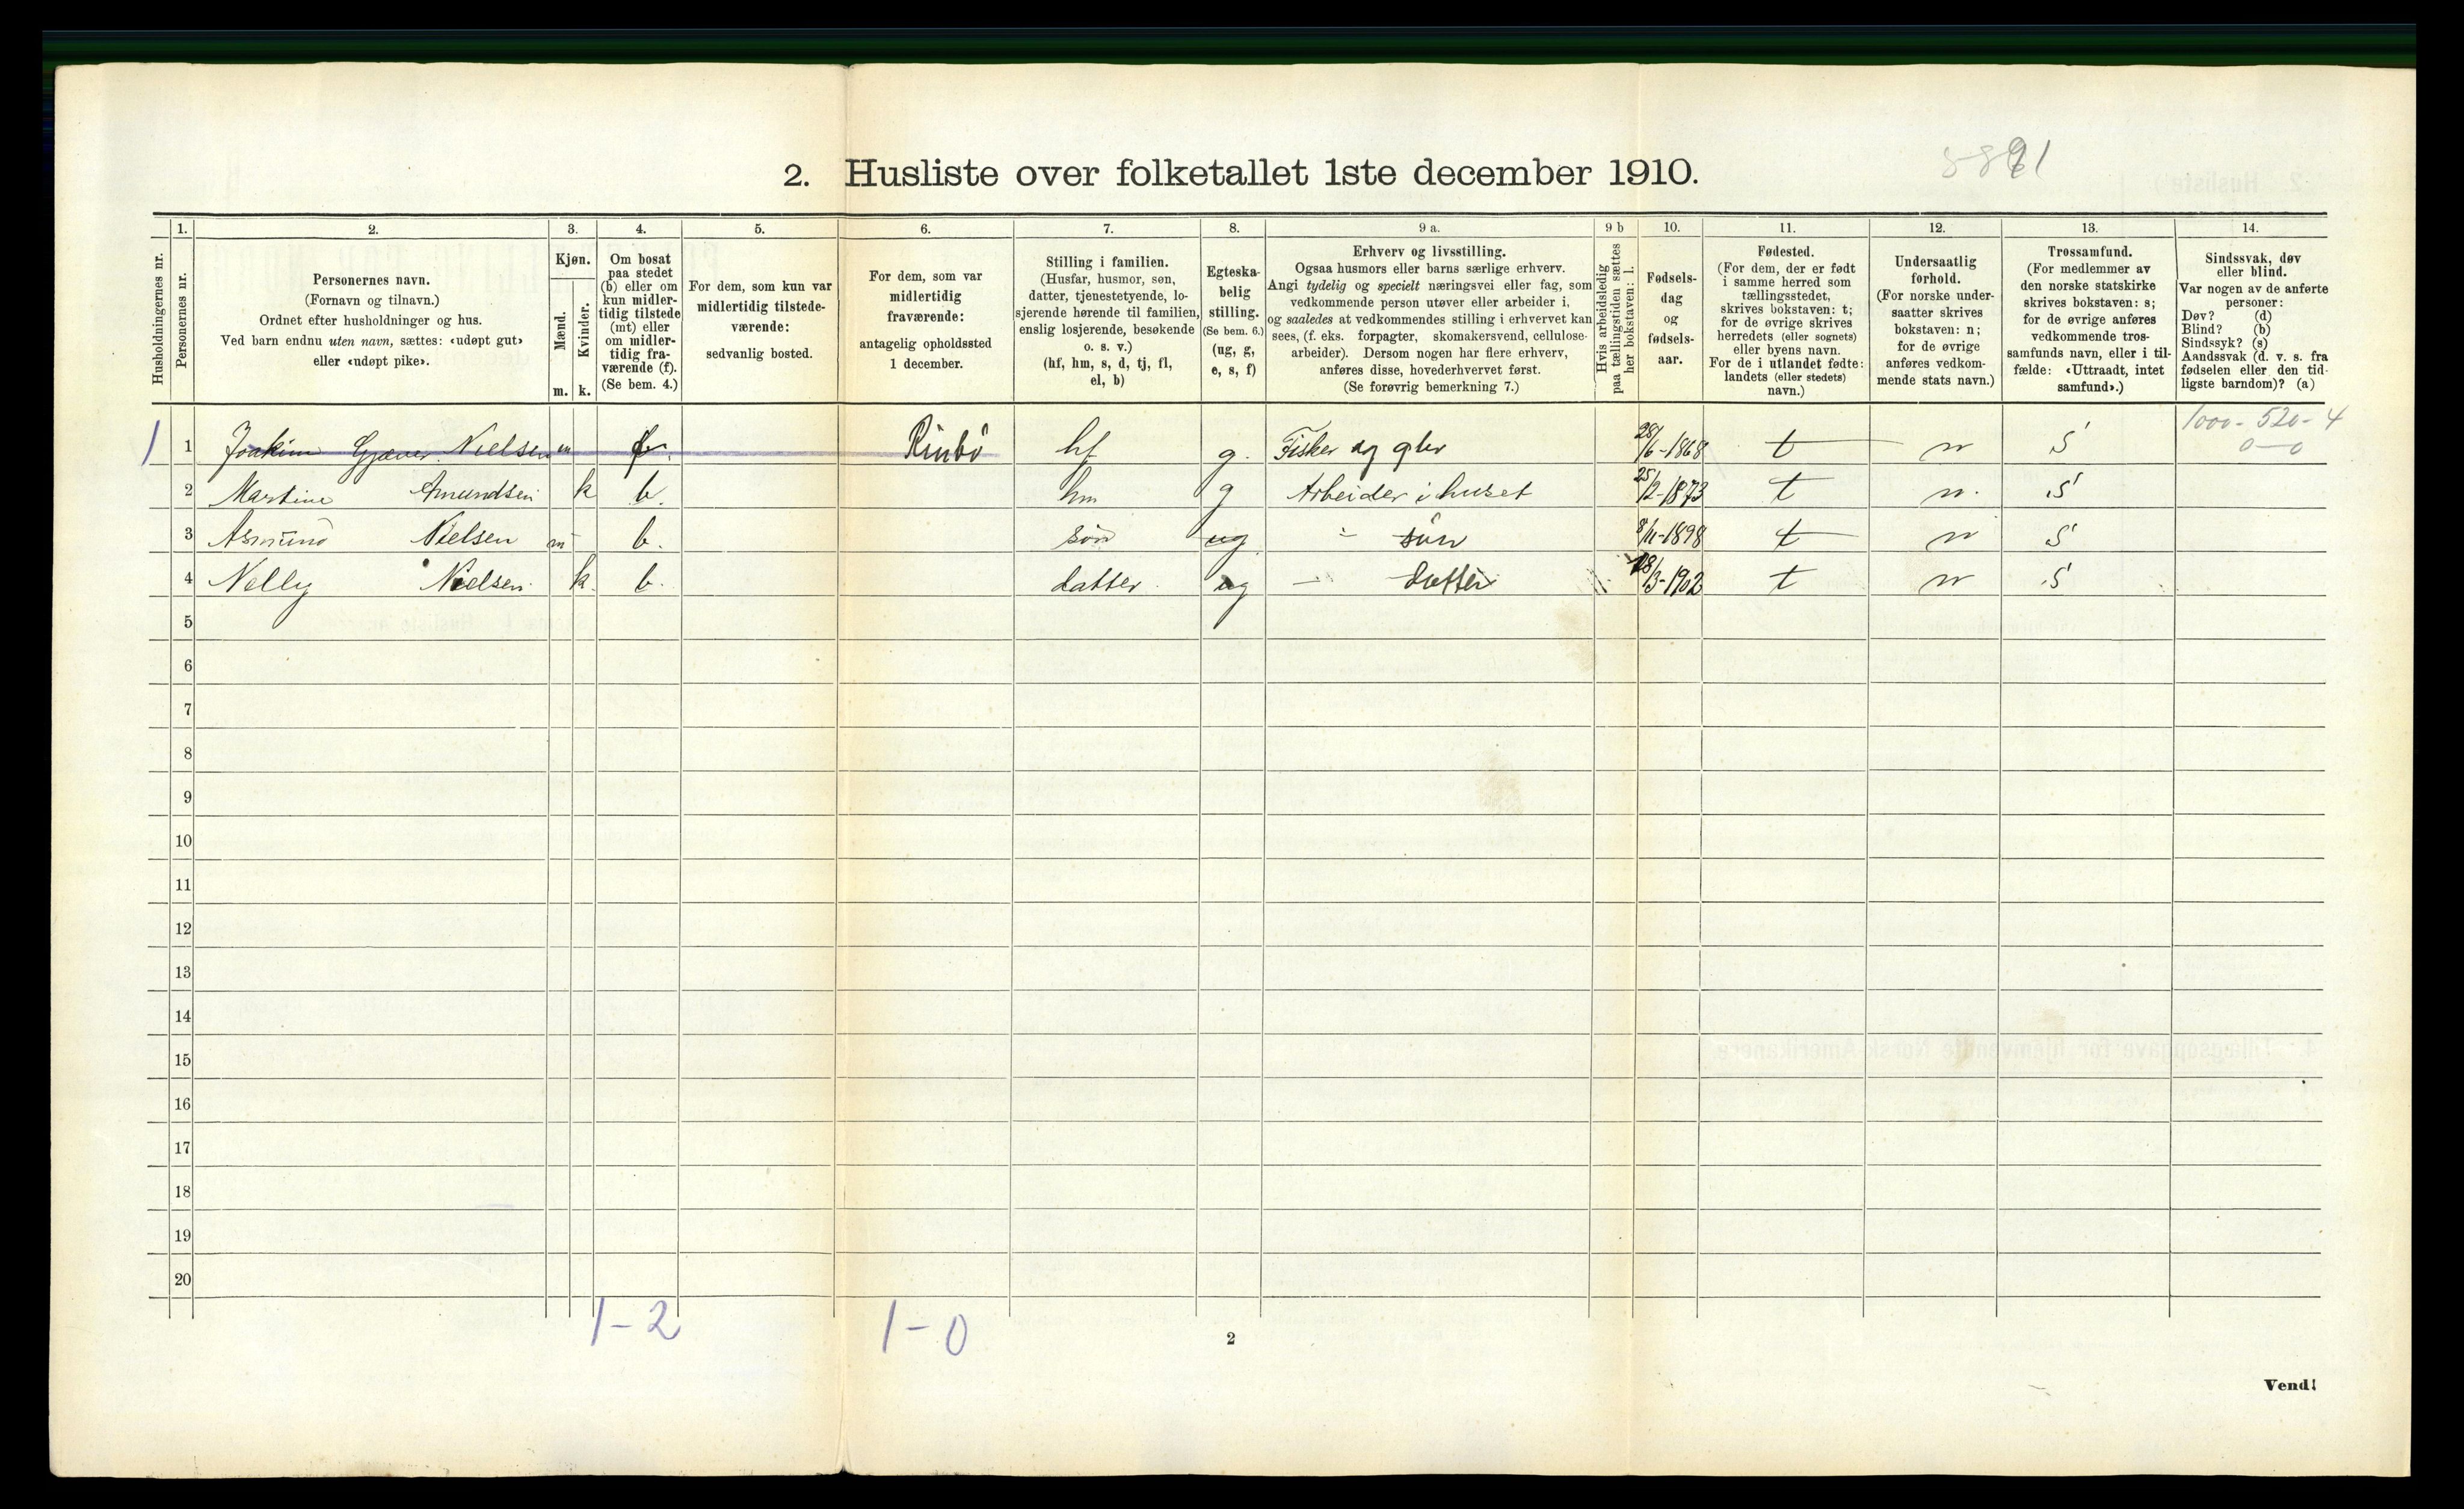 2. Husliste over folketallet 1ste december 1910.
1. 2. 3. 4. 5. 6. 7. 8. 9 a. 9 b 10. 11. 12. 13. 14.
Husholdningernes nr.
Personernes nr.
Personernes navn.
(Fornavn og tilnavn.)
Ordnet efter husholdninger og hus.
Ved barn endnu uten navn, sættes: «udøpt gut»
eller «udøpt pike».
Kjøn.
Mænd.
m.
Kvinder.
k.
Om bosat
paa stedet
(b) eller om
kun midler-
tidig tilstede
(mt) eller
om midler-
tidig fra-
værende (f).
(Se bem. 4.)
For dem, som kun var
midlertidig tilstede-
værende:
sedvanlig bosted.
For dem, som var
midlertidig
fraværende:
antagelig opholdssted
1 december.
Stilling i familien.
(Husfar, husmor, søn,
datter, tjenestetyende, lo-
sjerende hørende til familien,
enslig losjerende, besøkende
o. s. v.)
(hf, hm, s, d, tj, fl,
el, b)
Egteska-
belig
stilling.
(Se bem. 6.)
(ug, g,
e, s, f)
Erhverv og livsstilling.
Ogsaa husmors eller barns særlige erhverv.
Angi tydelig og specielt næringsvei eller fag, som
vedkommende person utøver eller arbeider i,
og saaledes at vedkommendes stilling i erhvervet kan
sees, (f. eks. forpagter, skomakersvend, cellulose-
arbeider). Dersom nogen har flere erhverv,
anføres disse, hovederhvervet først.
(Se forøvrig bemerkning 7.)
Hvis arbeidsledig
paa tællingstiden sættes
her bokstaven: l.
Fødsels-
dag
og
fødsels-
aar.
Fødested.
(For dem, der er født
i samme herred som
tællingsstedet,
skrives bokstaven: t;
for de øvrige skrives
herredets (eller sognets)
eller byens navn.
For de i utlandet fødte:
landets (eller stedets)
navn.)
Undersaatlig
forhold.
(For norske under-
saatter skrives
bokstaven: n;
for de øvrige
anføres vedkom-
mende stats navn.)
Trossamfund.
(For medlemmer av
den norske statskirke
skrives bokstaven: s;
for de øvrige anføres
vedkommende tros-
samfunds navn, eller i til-
fælde: «Uttraadt, intet
samfund».)
Sindssvak, døv
eller blind.
Var nogen av de anførte
personer:
Døv? (d)
Blind? (b)
Sindssyk? (s)
Aandssvak (d. v. s. fra
fødselen eller den tid-
ligste barndom)? (a)
1000-520-4
0-0
1 1 Joakim Gjæver Nielsen m f. Rinbö hf g. Fisker og 28/6-1868 t n S
2 Martine Amundsen k b. hm g Arbeider i huset 25/2-1873 t n. S
3 Asmund Nielsen m b. søn ug " søn 8/11-1898 t n S
4 Nelly Nielsen k. b. datter ug " datter 18/3-1902 t n S
5
6
7
8
9
10
11
12
13
14
15
16
17
18
19
20
1-2 1-0
2
Vend!